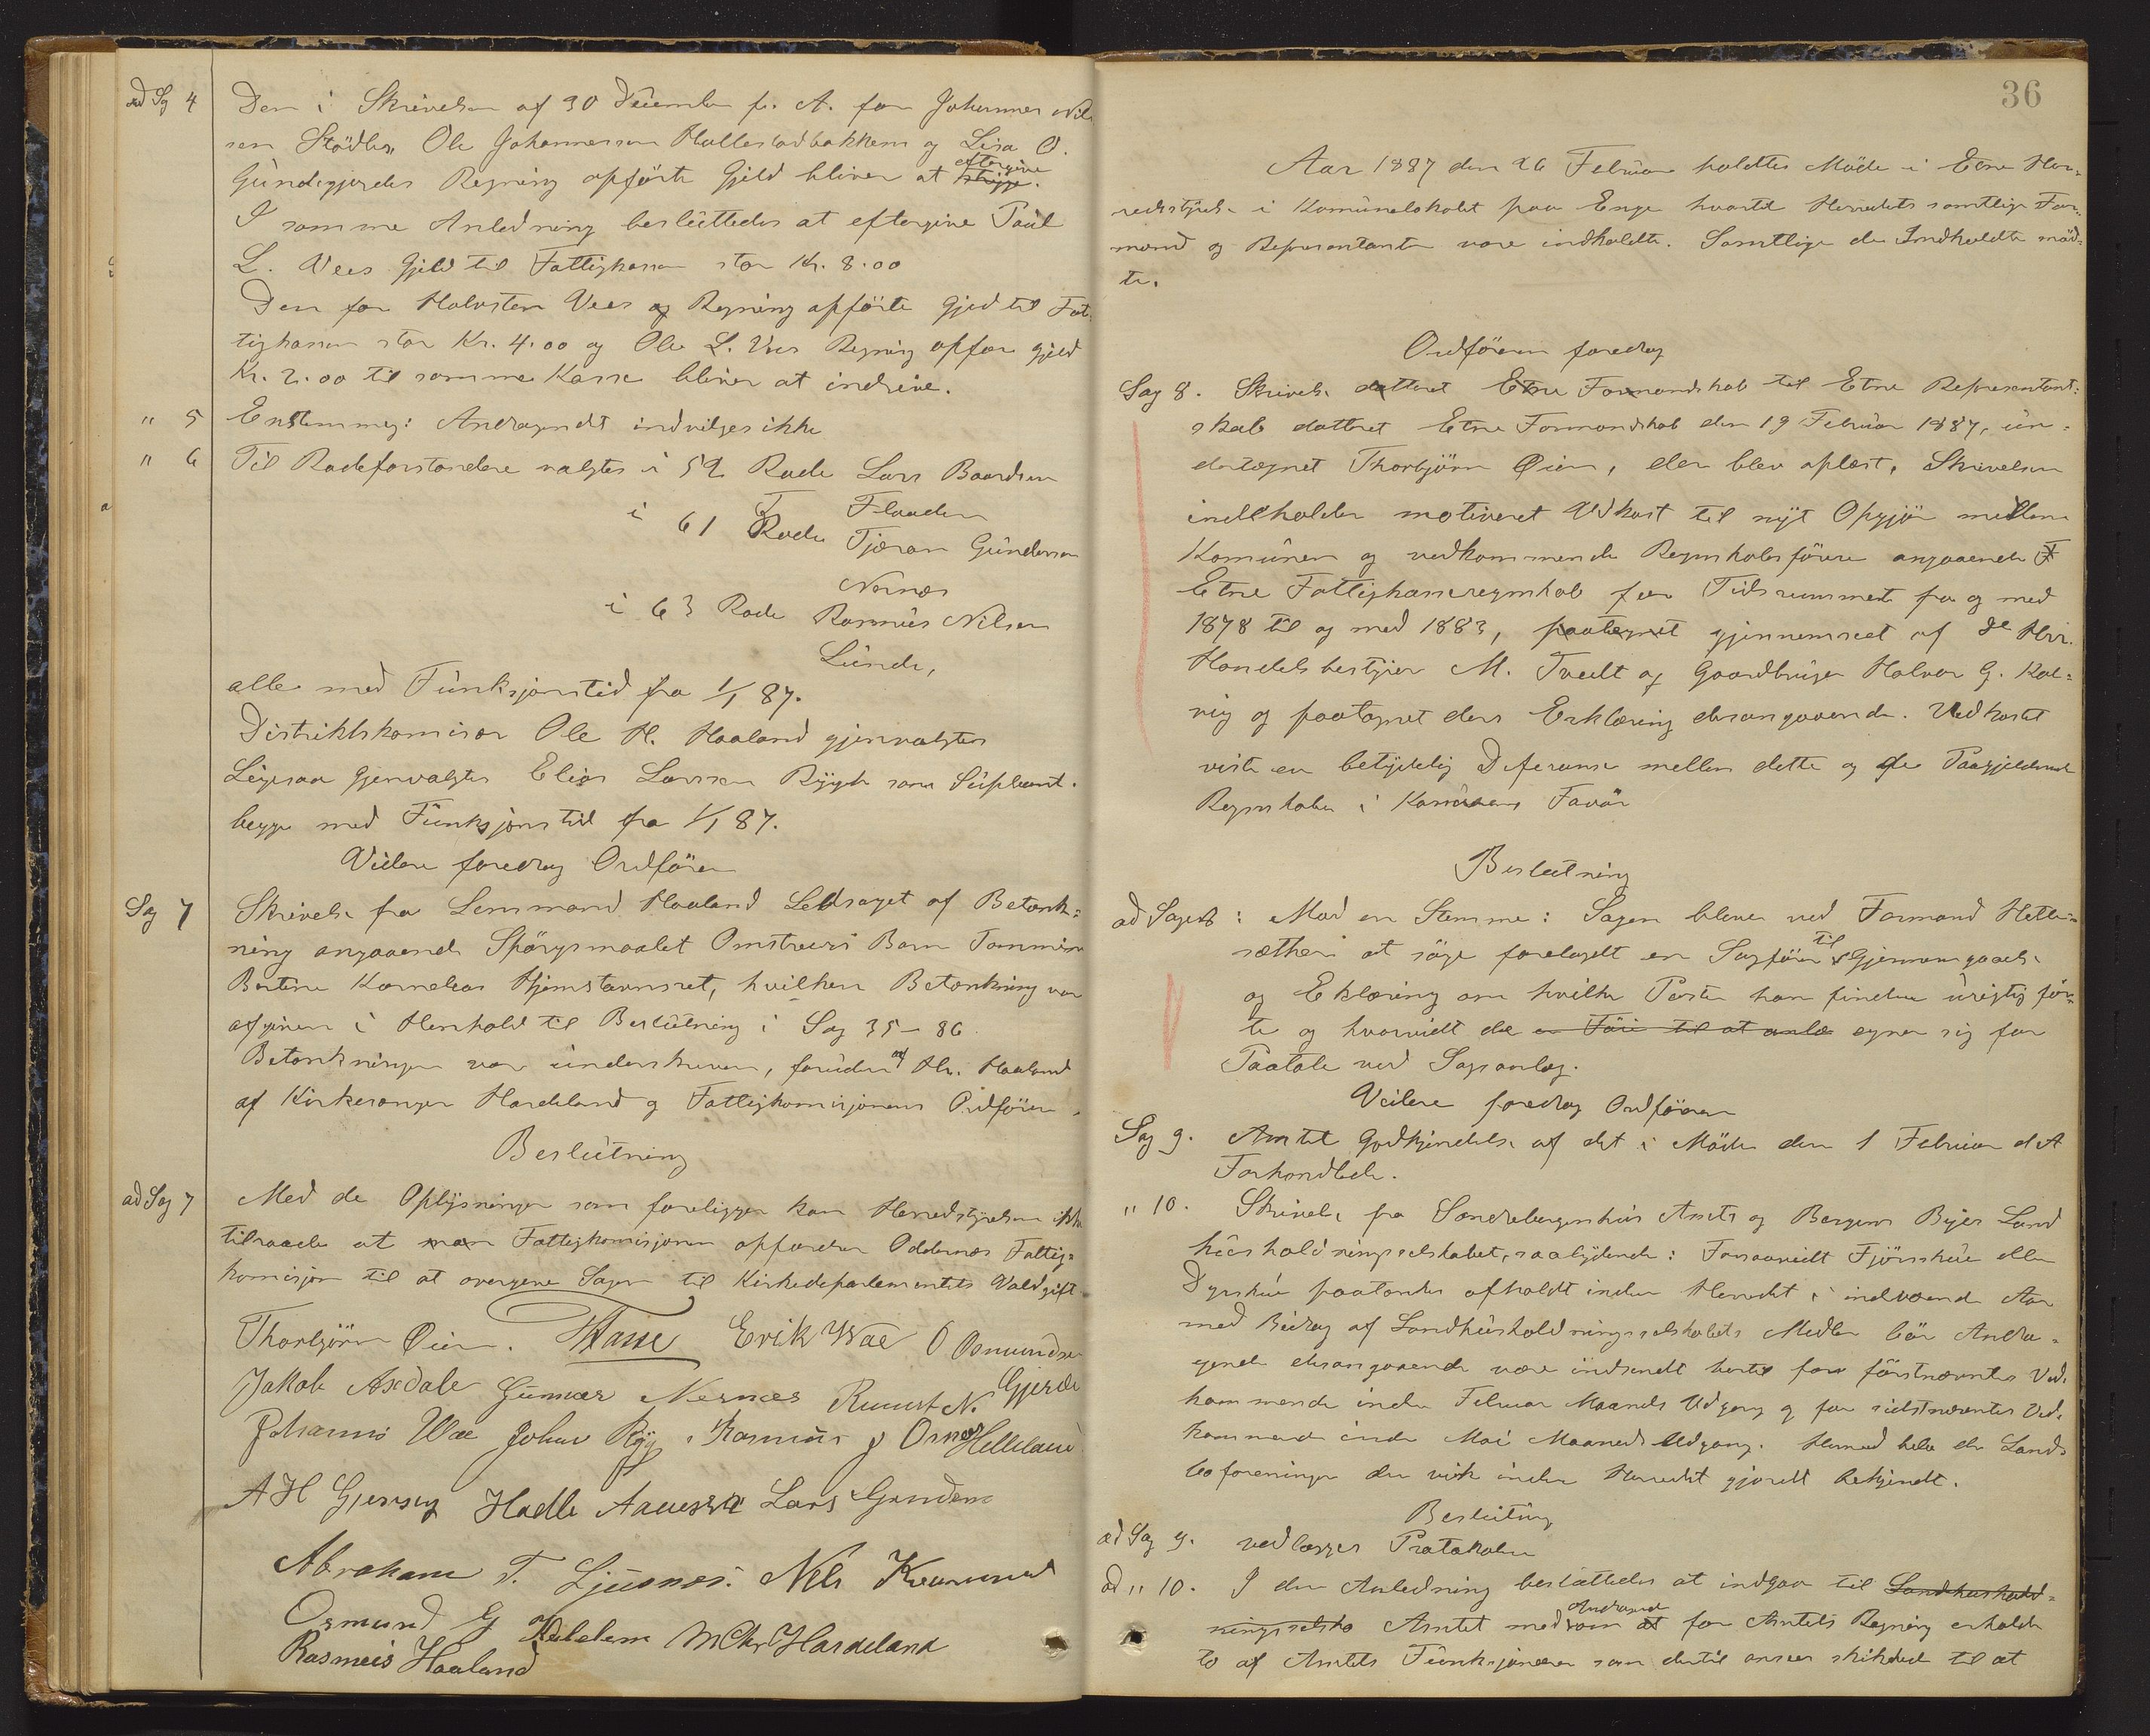 ad Sg 4 Den i Skrivelsen af 30 December f. A. for Johannes Nil
sen Stödle, Ole Johannessen Hallesladbakken og Lisa O.
Gundegjerdes Regning opförte Gjeld bliver at eftergive
I samme Anledning besluttedes at eftergive Paul
L. Vees Gjeld til Fattigkassen stor Kr. 8.00
Den for Halvsten Vees Regning opförte Gjed til Fat
tigkassen stor Kr. 4.00 og Ole L. Vees Regning opför gjeld
Kr. 2.00 til samme Kasse bliver at inddrive.
" 5 Enstemmig: Andragendet indvilges ikke
" 6 Til Rodeforstandere valgtes i 59 Rode Lars Baardsen
Flaaden
i 61 Rode Tjæran Gundersen
Nernæs
i 63 Rode Rasmus Nilsen
Lunde,
alle med Funksjonstid fra 1/1 87.
Distriktskomisær Ole H. Haaland gjenvalgtes
Ligesaa Gjenvalgtes Elias Larssen Rygh som Supleant.
begge med Funksjonstid fra 1/1 87.
Videre foredrog Ordfören
Sag 7 Skrivelse fra Lensmand Haaland Ledsaget af Betænk=
ning angaaende Spörgsmaalet Omstreifs Barn Tomine
Bertine Korneleas Hjemstavnsret, hvilken Betænkning var
afgiven i Henhold til Beslutning i Sag 35-86.
Betænkningen var underskreven, foruden af Hr. Haaland
af Kirkesanger Hardeland og Fattigkomisjonens Ordförer.
Beslutning
ad Sag 7 Med de Oplysninger som foreligger kan Herredstyrelsen ikke
tilraade at Fattigkomisjonen opfordrer Oddernæs Fattig=
komisjon til at overgive Sagen til Kirkedepartementets Voldgift
Thorbjörn Øien. Erik Wae O Osmundsen
Jakob Axdale Gunnar Nernæs Knut N. Gjerde
Johannes Wae Johan Ryg Rasmus J Osnes Helleland
A H Gjersvig Hadle Lars Gundersen
Abraham T. Ljusnæs. Nils
Osmund G Hardeland
Rasmus Haaland
36
Aar 1887 den 26 Februar holdtes Möde i Etne Her=
redsstyrelse i Komunelokalet paa Enge hvortil Herredets samtlige For=
mænd og Repræsentanter vare indkaldte. Samtlige de Indkaldte mød=
te.
Ordföreren foredrog
Sag 8. Skrivelse datteret Etne Formandskab til Etne Repræsentant:
skab datteret Etne Formandskab den 19 Februar 1887, un=
dertegnet Thorbjörn Øien, den blev oplæst. Skrivelsen
indeholder motiveret Udkast til nyt Opgjör mellem
Komunen og vedkommende Regnskabsförere angaaende
Etne Fattigkasseregnskab for Tidsrummet fra og med
1878 til og med 1883, gjennemseet af de Hrr.
Handelsbestyrer M. Tvedt og Gaardbruger Halvor G. Kal=
vig og paategnet ders Erklæring desangaaende. Udkastet
viste en betydelig Diferanse mellem dette og de Paagjeldende
Regnskaber i Komunens Favör
Beslutning
ad Sag 8: Mod en Stemme: Sagen bliver ved Formand Hetle=
sæther at söge forelagdt en Sagförer til Gjennemgaaelse
og Erklæring om hvilke Poster han finder urigtig för=
te og hvorvidt de er Föie til at anlæ egner sig for
Paatale ved Sagsanlæg.
Videre foredrog Ordföreren
Sag 9. Amtets Godkjendelse af det i Möde den 1 Februar d A
Forhandlede.
" 10. Skrivelse fra Söndrebergenhus Amts og Bergens Byes Land
husholdningsselskabet, saalydende: Forsaavidt Fjösskue eller
Dyrskue paatænkes afholdt inden Herredet i indværende Aar
med Bidrag af Landhusholdningsselskabets Midler bör Andra=
gende desangaaende være indsendt hertil for förstnævntes Ved=
kommende inden Februar Maaneds Udgang og for sidstnævntes Ved=
kommende inden Mai Maaneds Udgang. Hermed bedes de Lands
boforeninger der virk inden Herredet gjoredt bekjendt.
Beslutning
ad Sag 9. vedlægges Protokolen
ad " 10. I den Anledning besluttedes at indgaa til Landhushold=
ningsselska Amtet med Andragende om at for Amtets Regning erholde
to af Amtets Funksjonærer som dertil ansees skikket til at